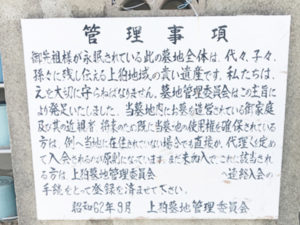 管理事項
御先祖様がお眠されている此の墓地全体は、代々、子々、
孫々に残し伝える上狛地域の貴い遺産です。私たちは、
之を大切に守らねばなりません。墓地管理委員会はこの主旨に
より発足いたしました。当墓地内にお墓を造営されている御家庭
及び其の近親者 将来のため既に当墓地の使用権を確保されている
方は、例へ当地に在住されていない場合でも直接か、代理人を定め
て入会されるのが原則になっています。まだ未加入で これに該当される
方は、上狛墓地管理委員会 へ連絡入会の
手続をとって登録を済ませて下さい。
昭和62年9月 上狛墓地管理委員会